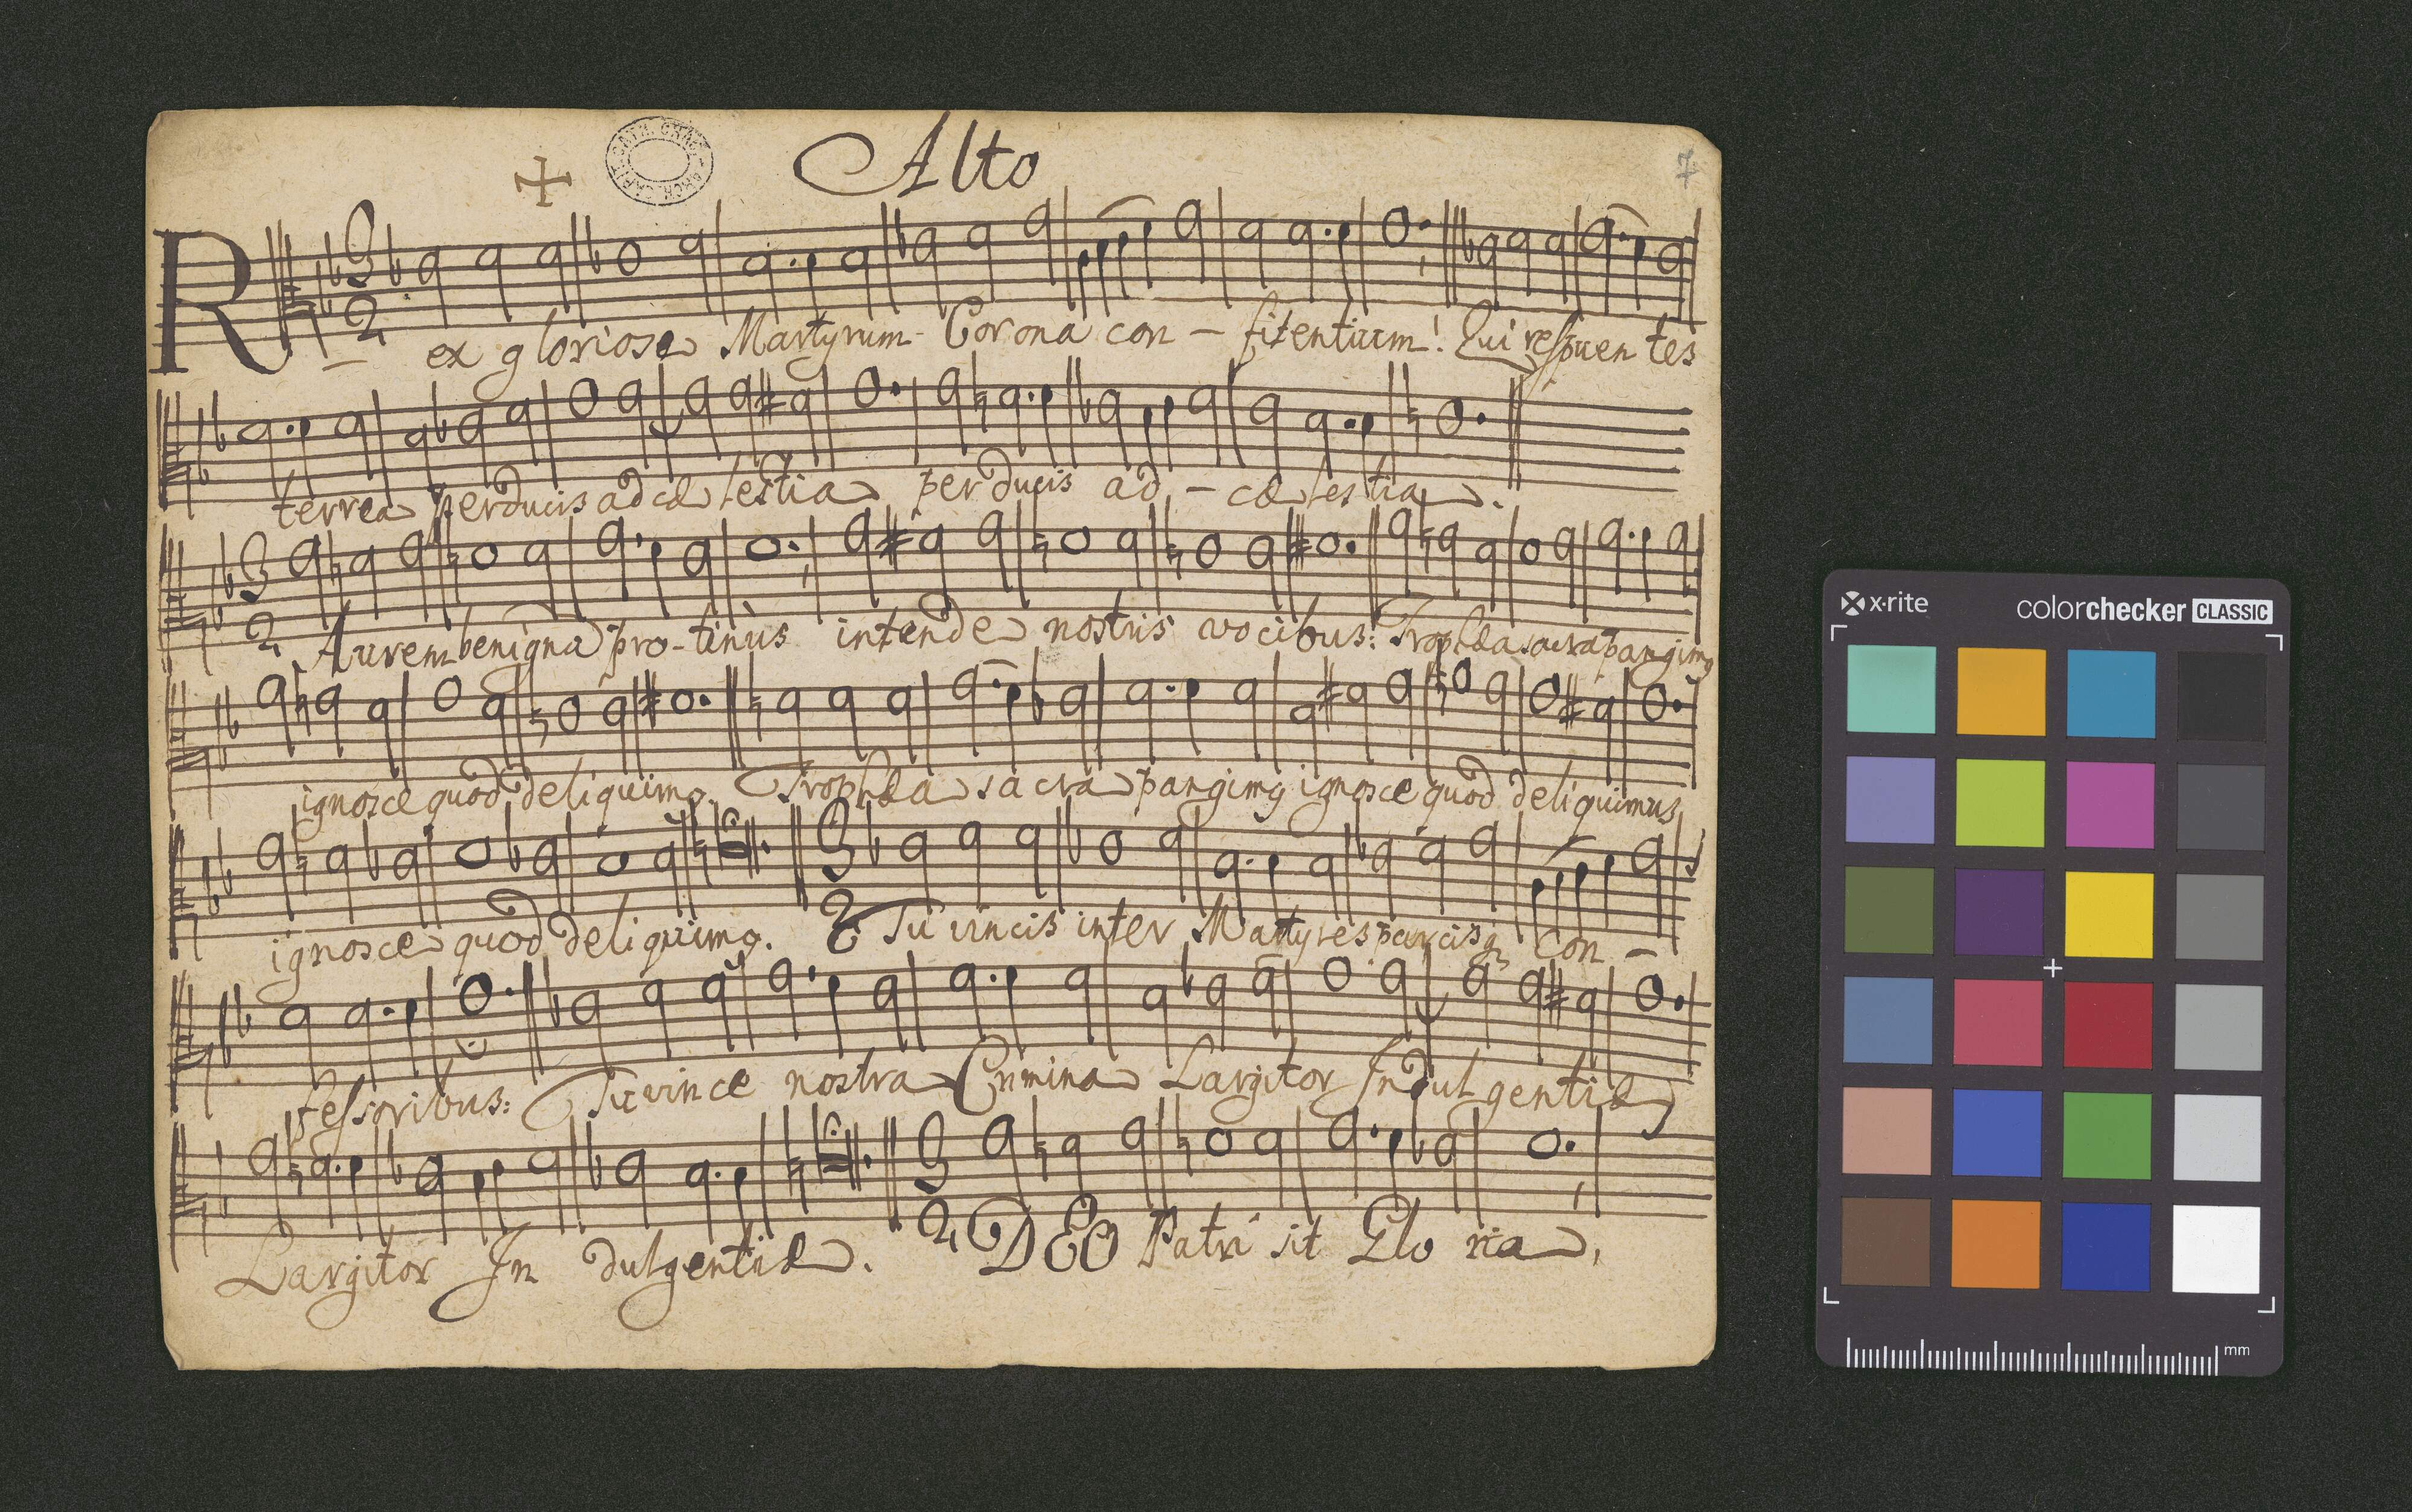 Alto
7
Rex gloriose Martyrum Corona con - fitentium! Qui respuen tes
terrea perducis ad cælestia perducis ad - cælestia.
Aurem benigna pro-tinùs intende nostris vocibus: Trophæa sacra pangimꝯ
ignosce quod deliquimꝯ. Trophæa sacra pangimꝯ ignosce quod deliquimus
ignosce quod deliquimꝯ. Tu vincis inter Martyres parcisq con -
fessoribus: Tu vince nostra Crimina Largitor Indulgentiæ
Largitor In dulgentiæ. DEO Patri sit Glo ria,
x·rite
colorchecker CLASSIC
mm